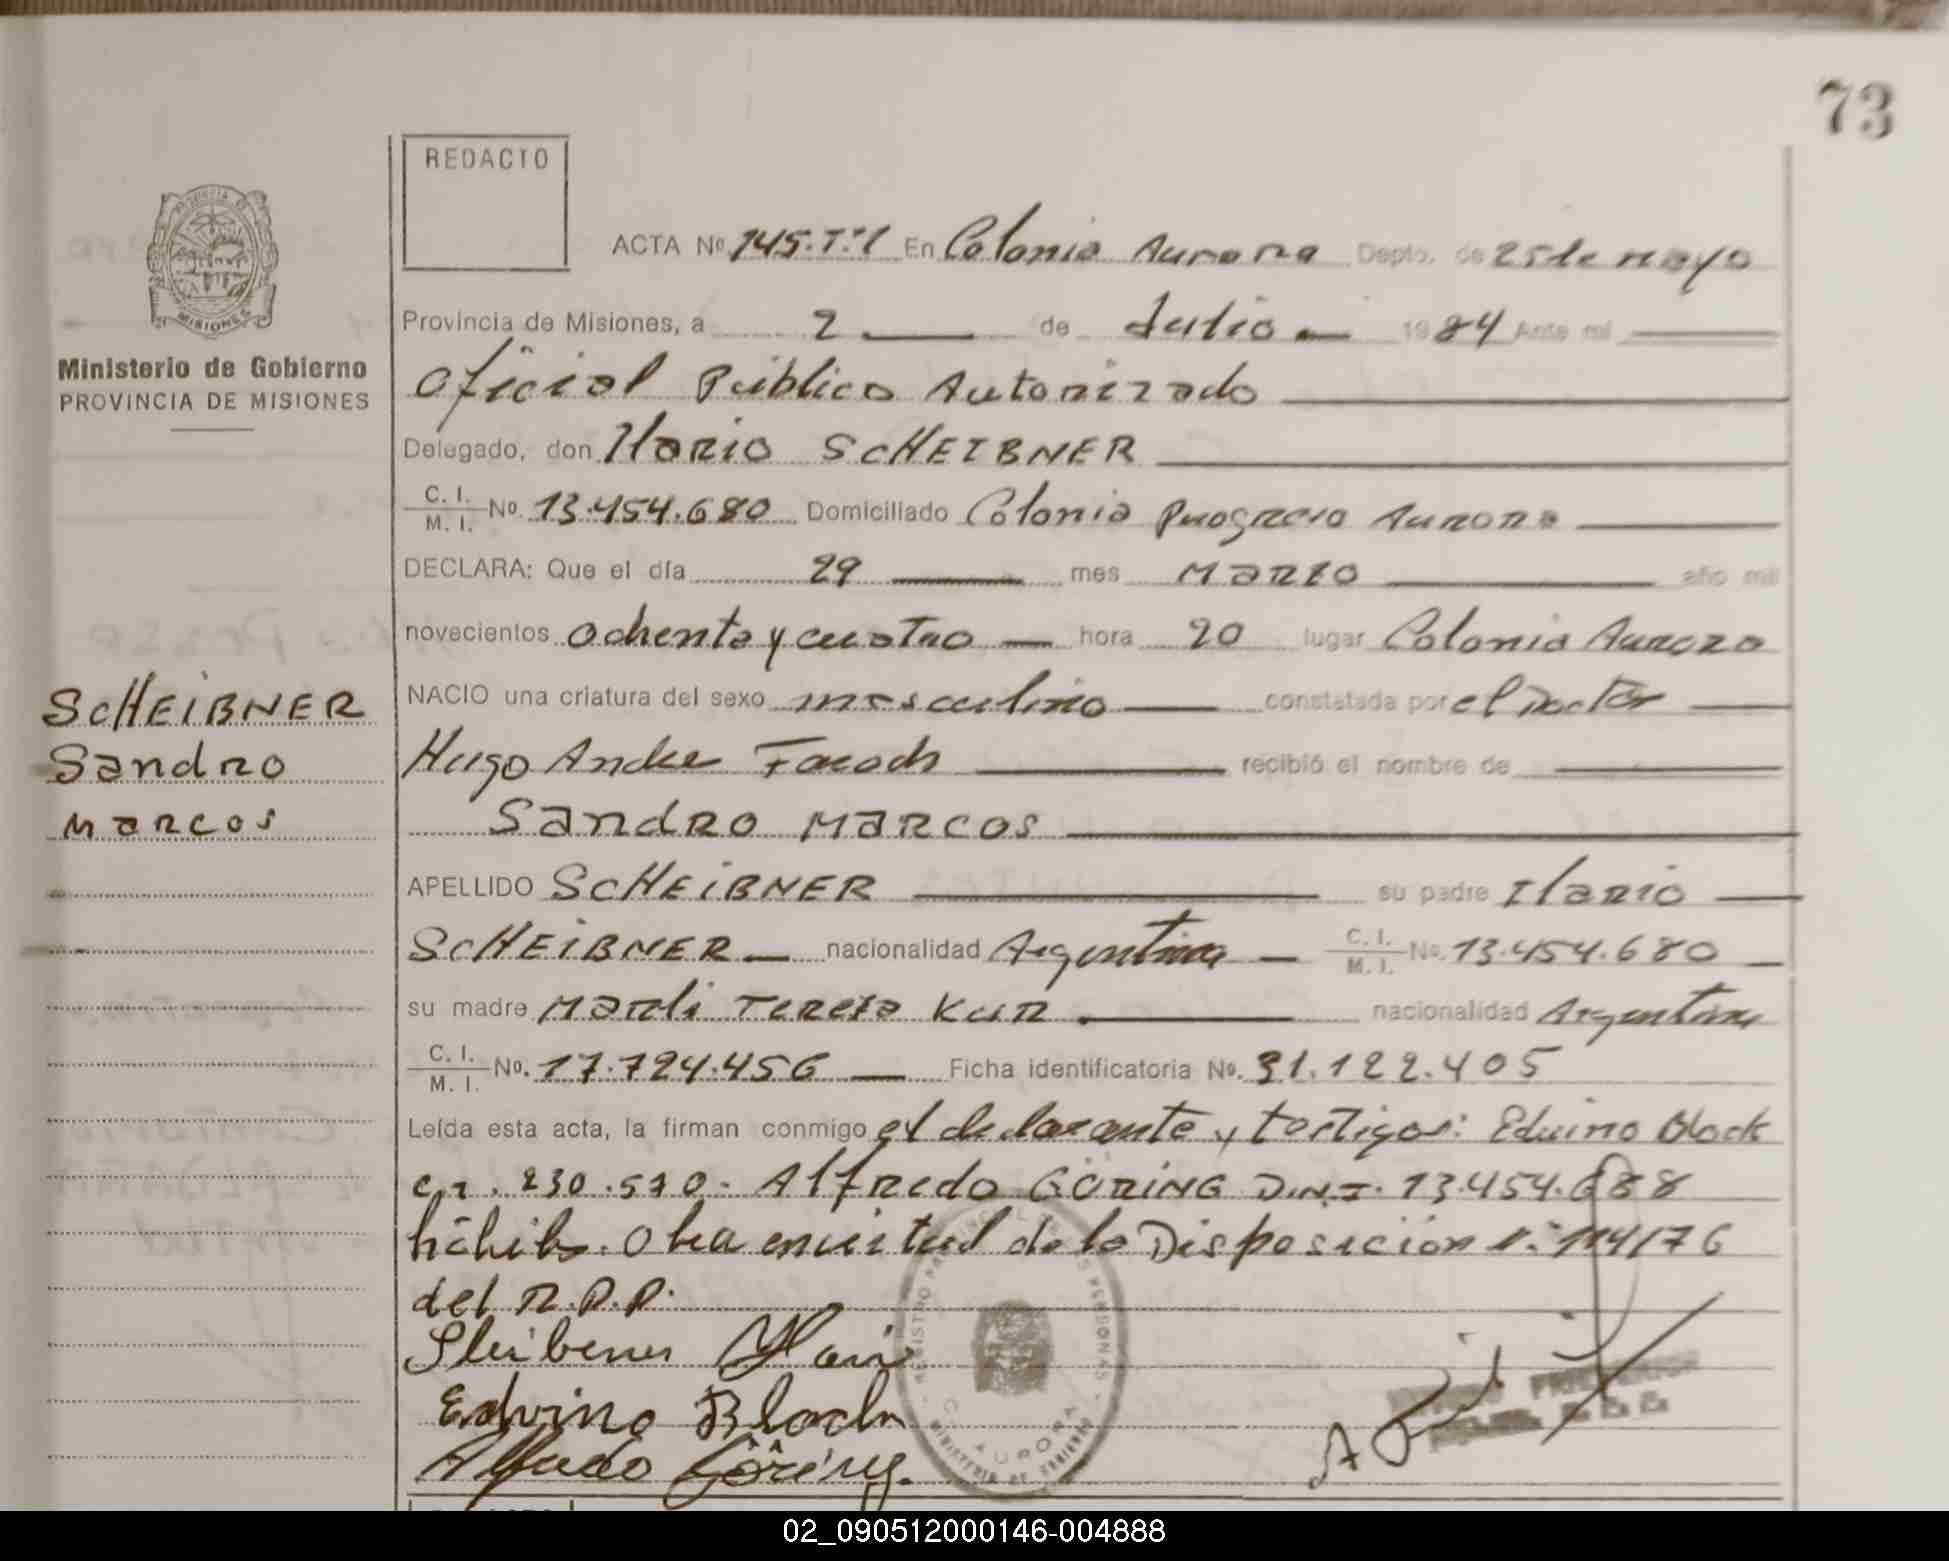 73
REDACTO
ACTA Nº 145.Tº1 En Colonia Aurora Depto. de 25 de mayo
Provincia de Misiones, a 2 de Julio 1984 Ante mi
Oficial Público Autorizado
Ministerio de Gobierno
PROVINCIA DE MISIONES
MISIONES
Delegado, don Ilario SCHEIBNER
C. I. / M. I. Nº. 13.454.680 Domiciliado Colonia Progreso Aurora
DECLARA: Que el día 29 mes Marzo año mil
novecientos ochenta y cuatro hora 20 lugar Colonia Aurora
NACIO una criatura del sexo masculino constatada por el Doctor
Hugo Andre recibió el nombre de
Sandro Marcos
SCHEIBNER
Sandro
Marcos
APELLIDO SCHEIBNER su padre Ilario
SCHEIBNER nacionalidad Argentina C. I. / M. I. Nº. 13.454.680
su madre Marli Teresa Kur nacionalidad Argentina
C. I. / M. I. Nº. 17.724.456 Ficha identificatoria Nº. 31.122.405
Leída esta acta, la firman conmigo el declarante y testigos: Eduino Block
C.I. 230.570. Alfredo GÖRING D.N.I. 13.454.688
hábiles. Obra en virtud de la Disposición Nº 114/76
del R.P.P.
Edvino Bloch
Alfredo Göring.
REGISTRO PROVINCIAL DE LAS PERSONAS
C. AURORA
MINISTERIO DE GOBIERNO
02_090512000146-004888